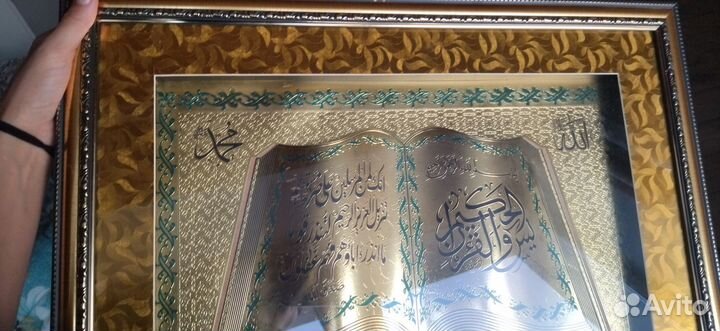 الله
محمد
بسم الله الرحمن الرحيم
يس والقرآن الحكيم
انك لمن المرسلين على صراط
تنزيل العزيز الرحيم لتنذر قوما
ما انذر اباؤهم فهم غافلون
Avito